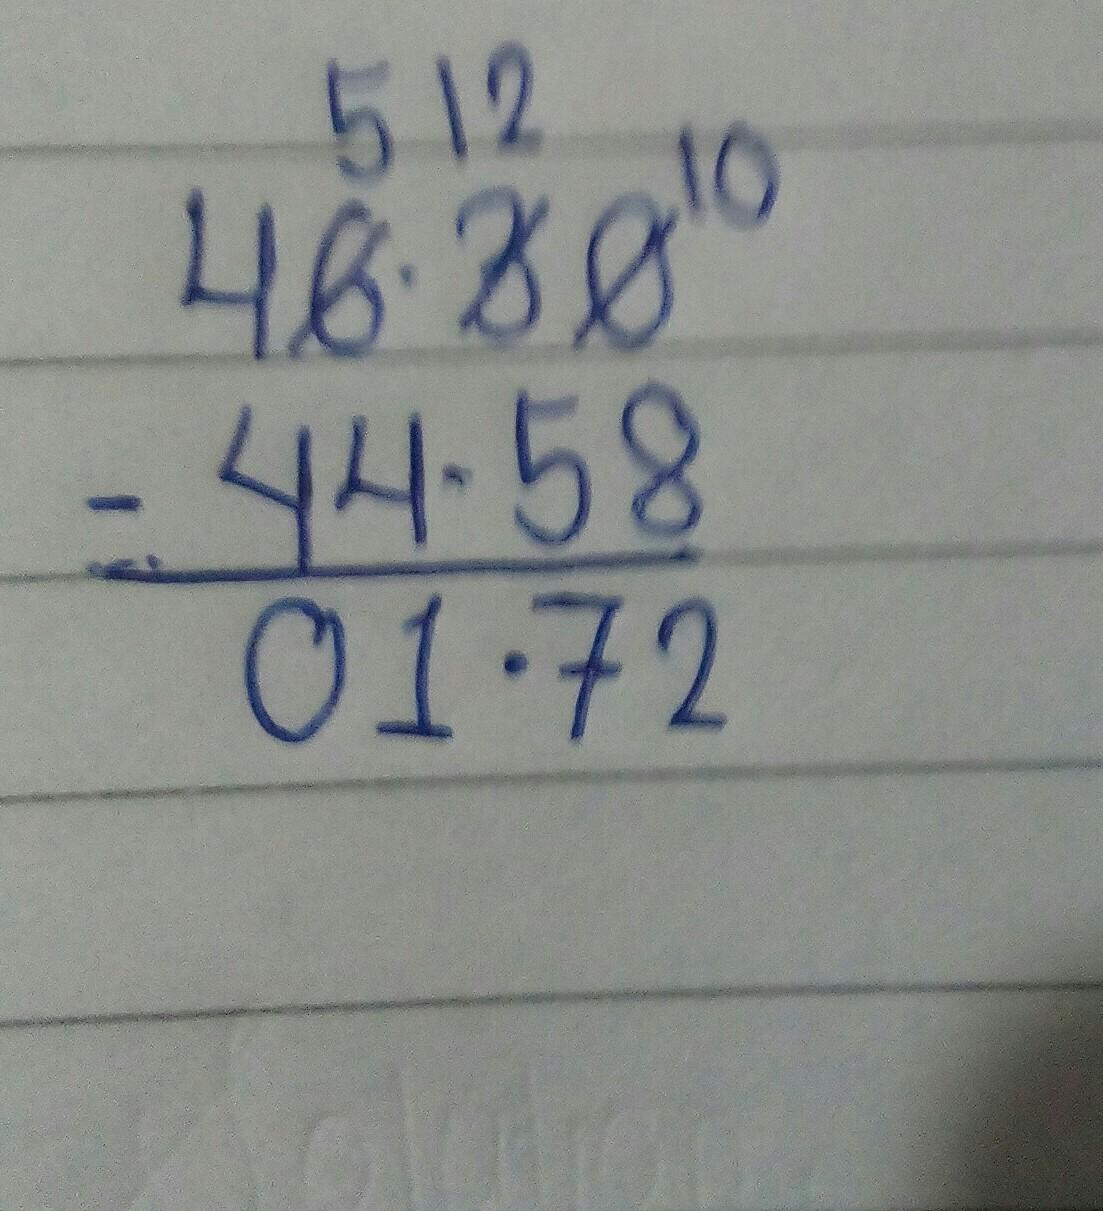 5 12
46.30 10
- 44.58
01.72